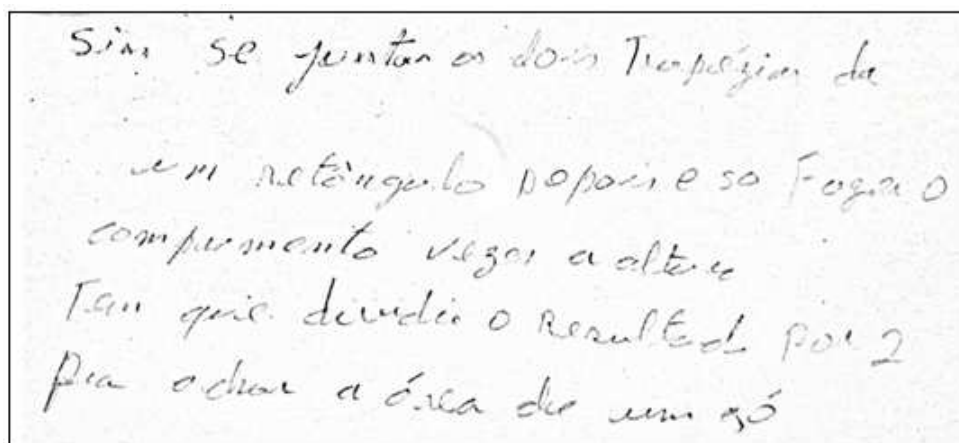 Sim se juntar os dois Trapézios da
um retângulo Depois e so Fazer o
comprimento vezes a altura
Tem que dividir o Resultado por 2
pra achar a área de um só